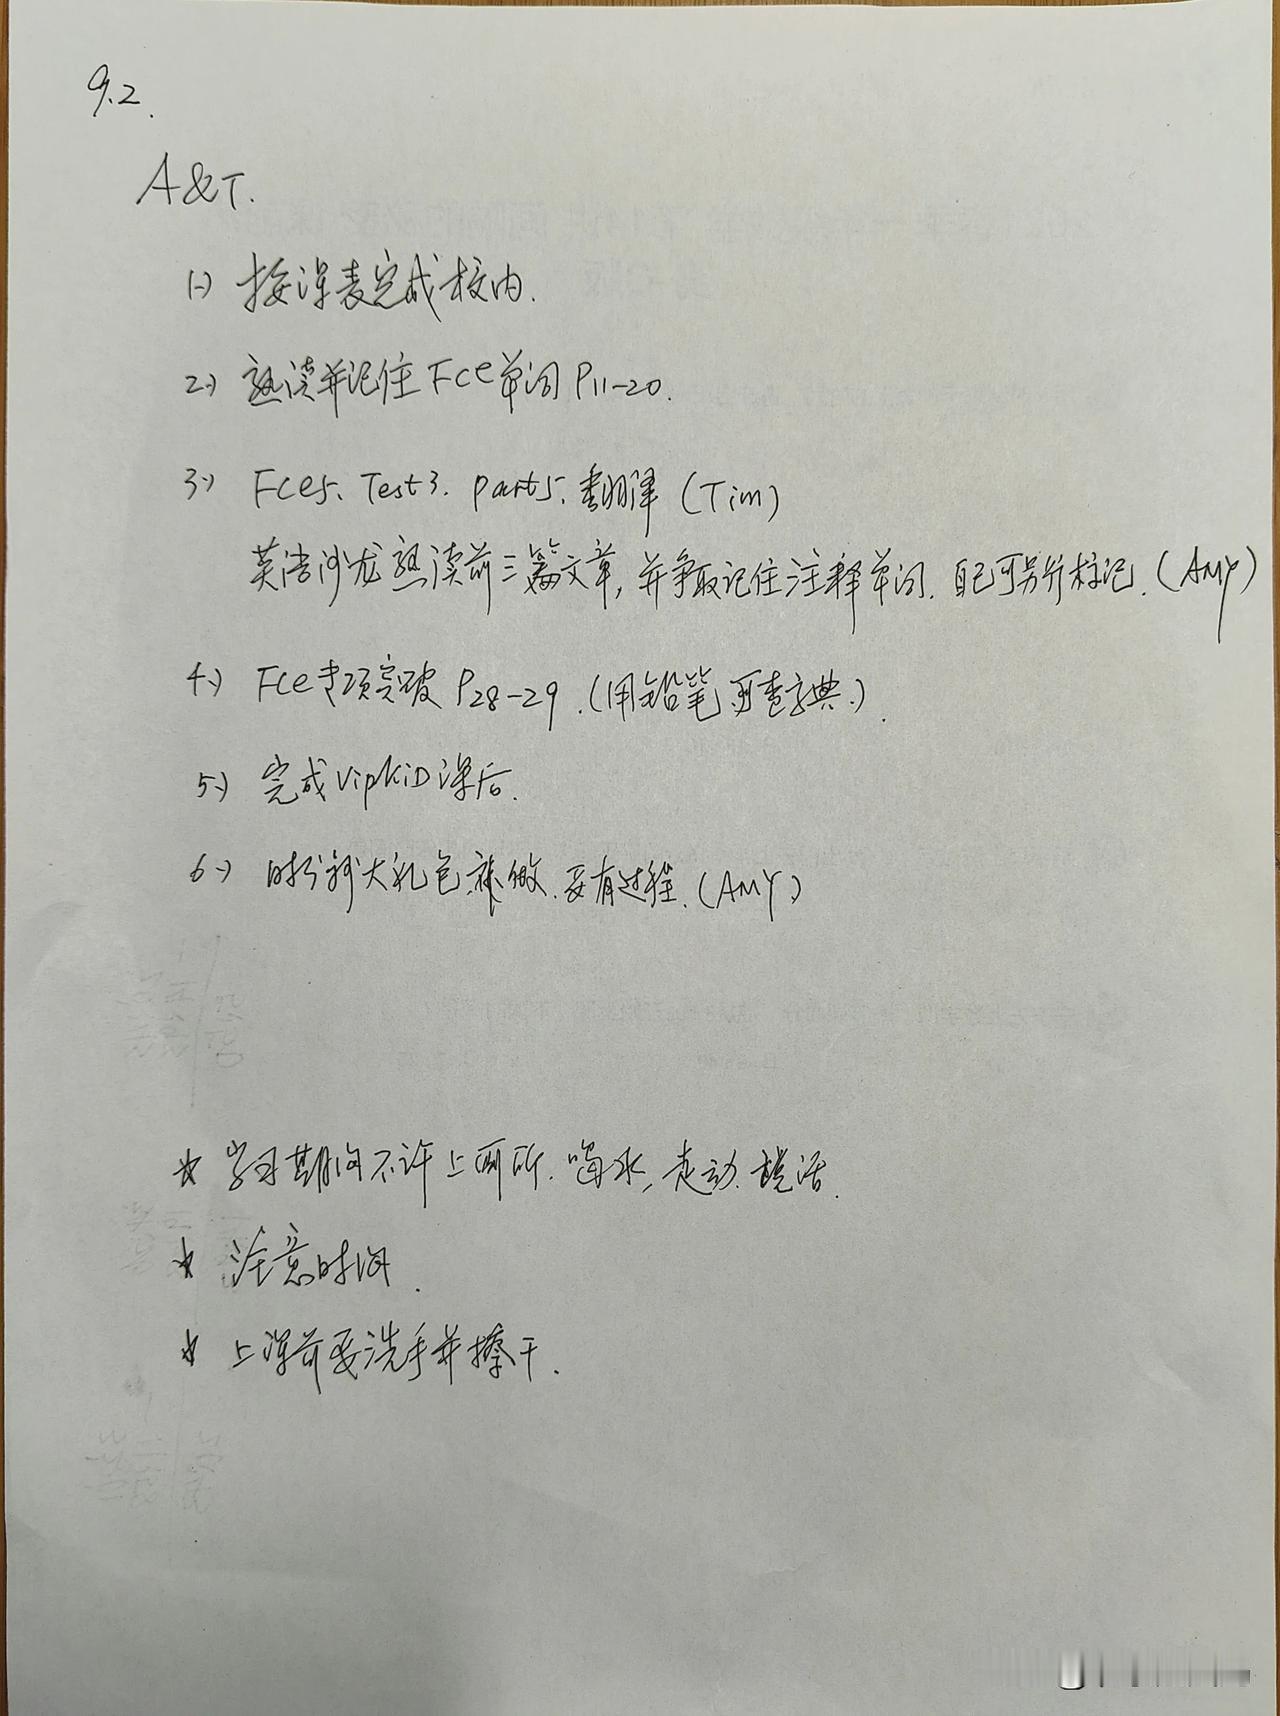 9.2.
A&T.
1) 按课表完成校内.
2) 熟读并记住Fce单词P11-20.
3) Fce5、Test3. part5. 翻译 (Tim)
英语沙龙熟读前三篇文章, 并争取记住注释单词. 自己可另行标记. (AMY)
4) Fce专项突破 P28-29. (用铅笔 可查字典.)
5) 完成VipKiD课后.
6) 大礼包 补做. 要有过程. (AMY)
☆ 学习期间不许上厕所. 喝水, 走动. 说话.
☆ 注意时间.
☆ 上课前要洗手并擦干.